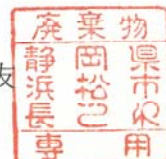 廃棄物
静岡県
浜松市
長之印
専用